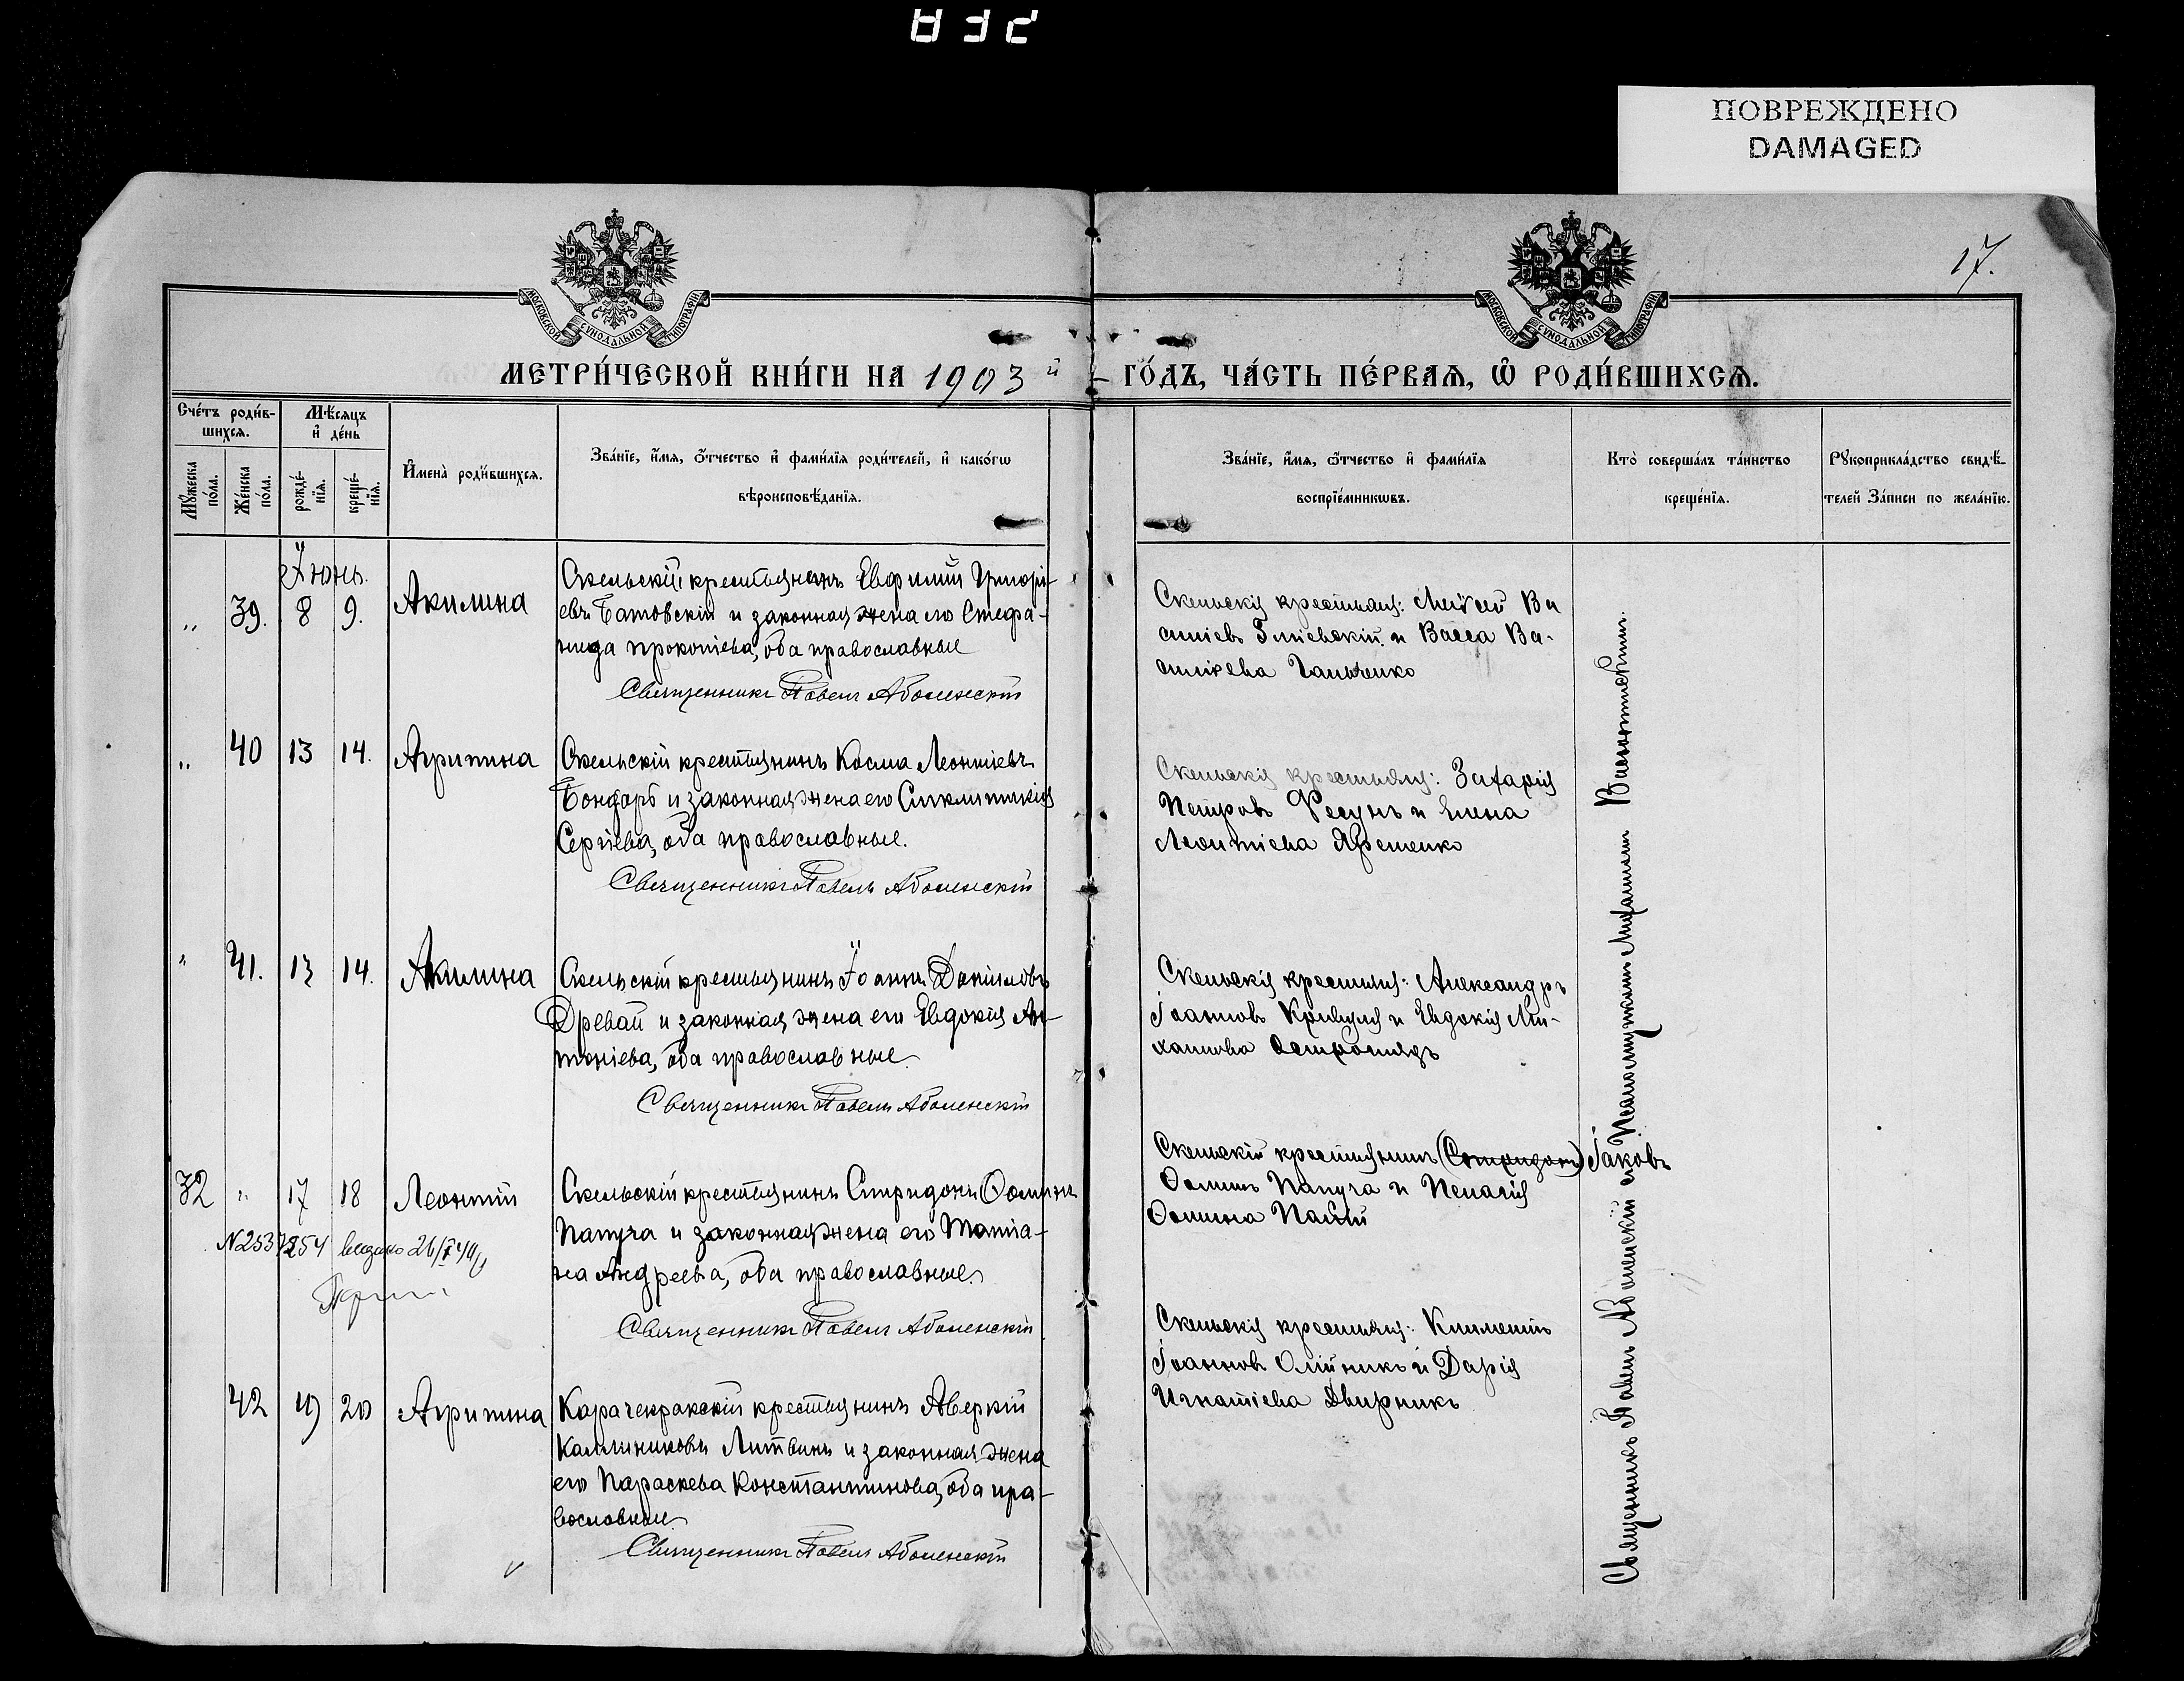 ПОВРЕЖДЕНО
DAMAGED
17.
МОСКОВСКОЙ СѴНОДАЛЬНОЙ ТИПОГРАФІИ
МОСКОВСКОЙ СѴНОДАЛЬНОЙ ТИПОГРАФІИ
МЕТРИ́ЧЕСКОЙ КНИ́ГИ НА 1903 й ГО́ДЪ, ЧА́СТЬ ПЕ́РВАѦ, Ѡ҆ РОДИ́ВШИХСѦ.
Сче́тъ роди́в-
шихсѧ.
Мꙋ́жеска по́ла.
Же́нска по́ла.
Мѣ́сѧцъ
и҆ де́нь
рожде́-
нїѧ.
креще́-
нїѧ.
И҆мена̀ роди́вшихсѧ.
Зва́нїе, и҆́мѧ, ѻ҆́тчество и҆ фами́лїѧ роди́телей, и҆ како́гѡ
вѣроисповѣ́данїѧ.
Зва́нїе, и҆́мѧ, ѻ҆́тчество и҆ фами́лїѧ
воспрїе́мникѡвъ.
Кто̀ соверша́лъ та́инство
креще́нїѧ.
Рꙋкоприкла́дство свидѣ́-
телей За́писи по жела́нїю.
Іюнь.
„ 39. 8 9. Акилина
Скельскій крестьянинъ Евфимій Григорі-
евъ Батовскій и законная жена его Стефа-
нида Прокопіева, оба православные
Священникъ Павелъ Аболенскій
Скельскія крестьяне: Моѵсей Ва
силіевъ Гиліевскій и Васса Ва-
силіева Гальченко
„ 40 13 14. Агрипина
Скельскій крестьянинъ Косма Леонтіевъ
Бондарь и законная жена его Сигклитикія
Сергіева, оба православные.
Священникъ Павелъ Аболенскій
Скельскія крестьяне: Захарія
Петровъ Ресунъ и Елена
Леонтіева Яременко
„ 41. 13 14. Акилина
Скельскій крестьянинъ Іоаннъ Даніиловъ
Древаль и законная жена его Евдокія Ан-
тоніева, оба православные
Священникъ Павелъ Аболенскій
Скельскія крестьяне: Александръ
Іоанновъ Кривуля и Евдокія Ми-
хаилова Остроглядъ
32 „ 17 18 Леонтій
Скельскій крестьянинъ Спиридонъ Ѳоминъ
Папуча и законная жена его Татіа-
на Андреева, оба православные.
Священникъ Павелъ Аболенскій
Скельскій крестьянинъ (Спиридонъ) Іаковъ
Ѳоминъ Папуча и Пелагія
Ѳомина Палій
42 19 20 Агрипина
Карачекракскій крестьянинъ Аверкій
Каллиниковъ Литвинъ и законная жена
его Параскева Константинова, оба пра-
вославные
Священникъ Павелъ Аболенскій
Скельскія крестьяне: Климентъ
Іоанновъ Олійникъ и Дарія
Игнатіева Двирникъ
Священникъ Павелъ Аболенскій съ Псаломщикомъ